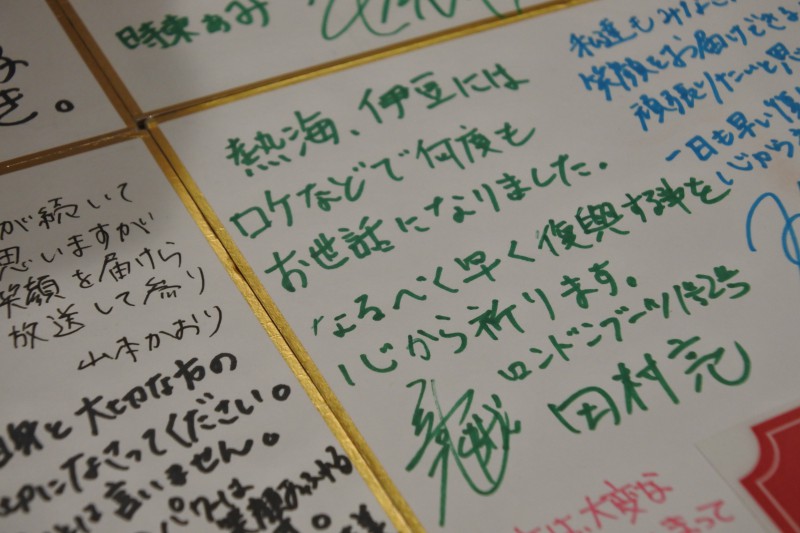 時東ぁみ
き。
私達もみな
笑顔をお届けでき
頑張りたいと思
一日も早い復
心から
熱海、伊豆には
ロケなどで何度も
お世話になりました。
なるべく早く復興する事を
心から祈ります。
ロンドンブーツ1号2号
田村亮
が続いて
思いますが
笑顔を届けら
放送して参り
山本かおり
自身と大切な方の
になさってください。
は言いません。
パワは
は、大変な
まって